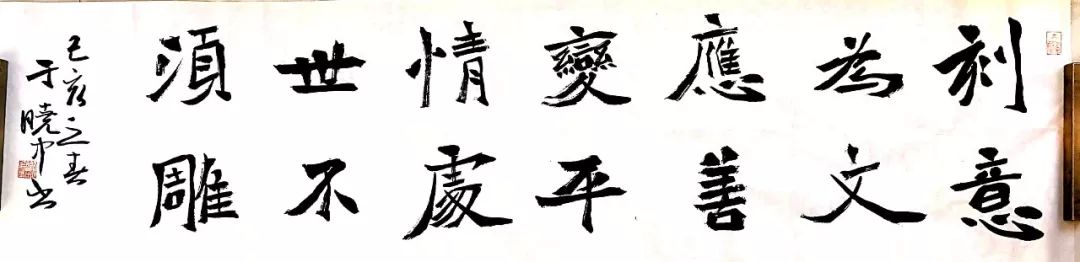 刻意
為文
應善
變平
情處
世不
須雕
己亥之春
于曉中书